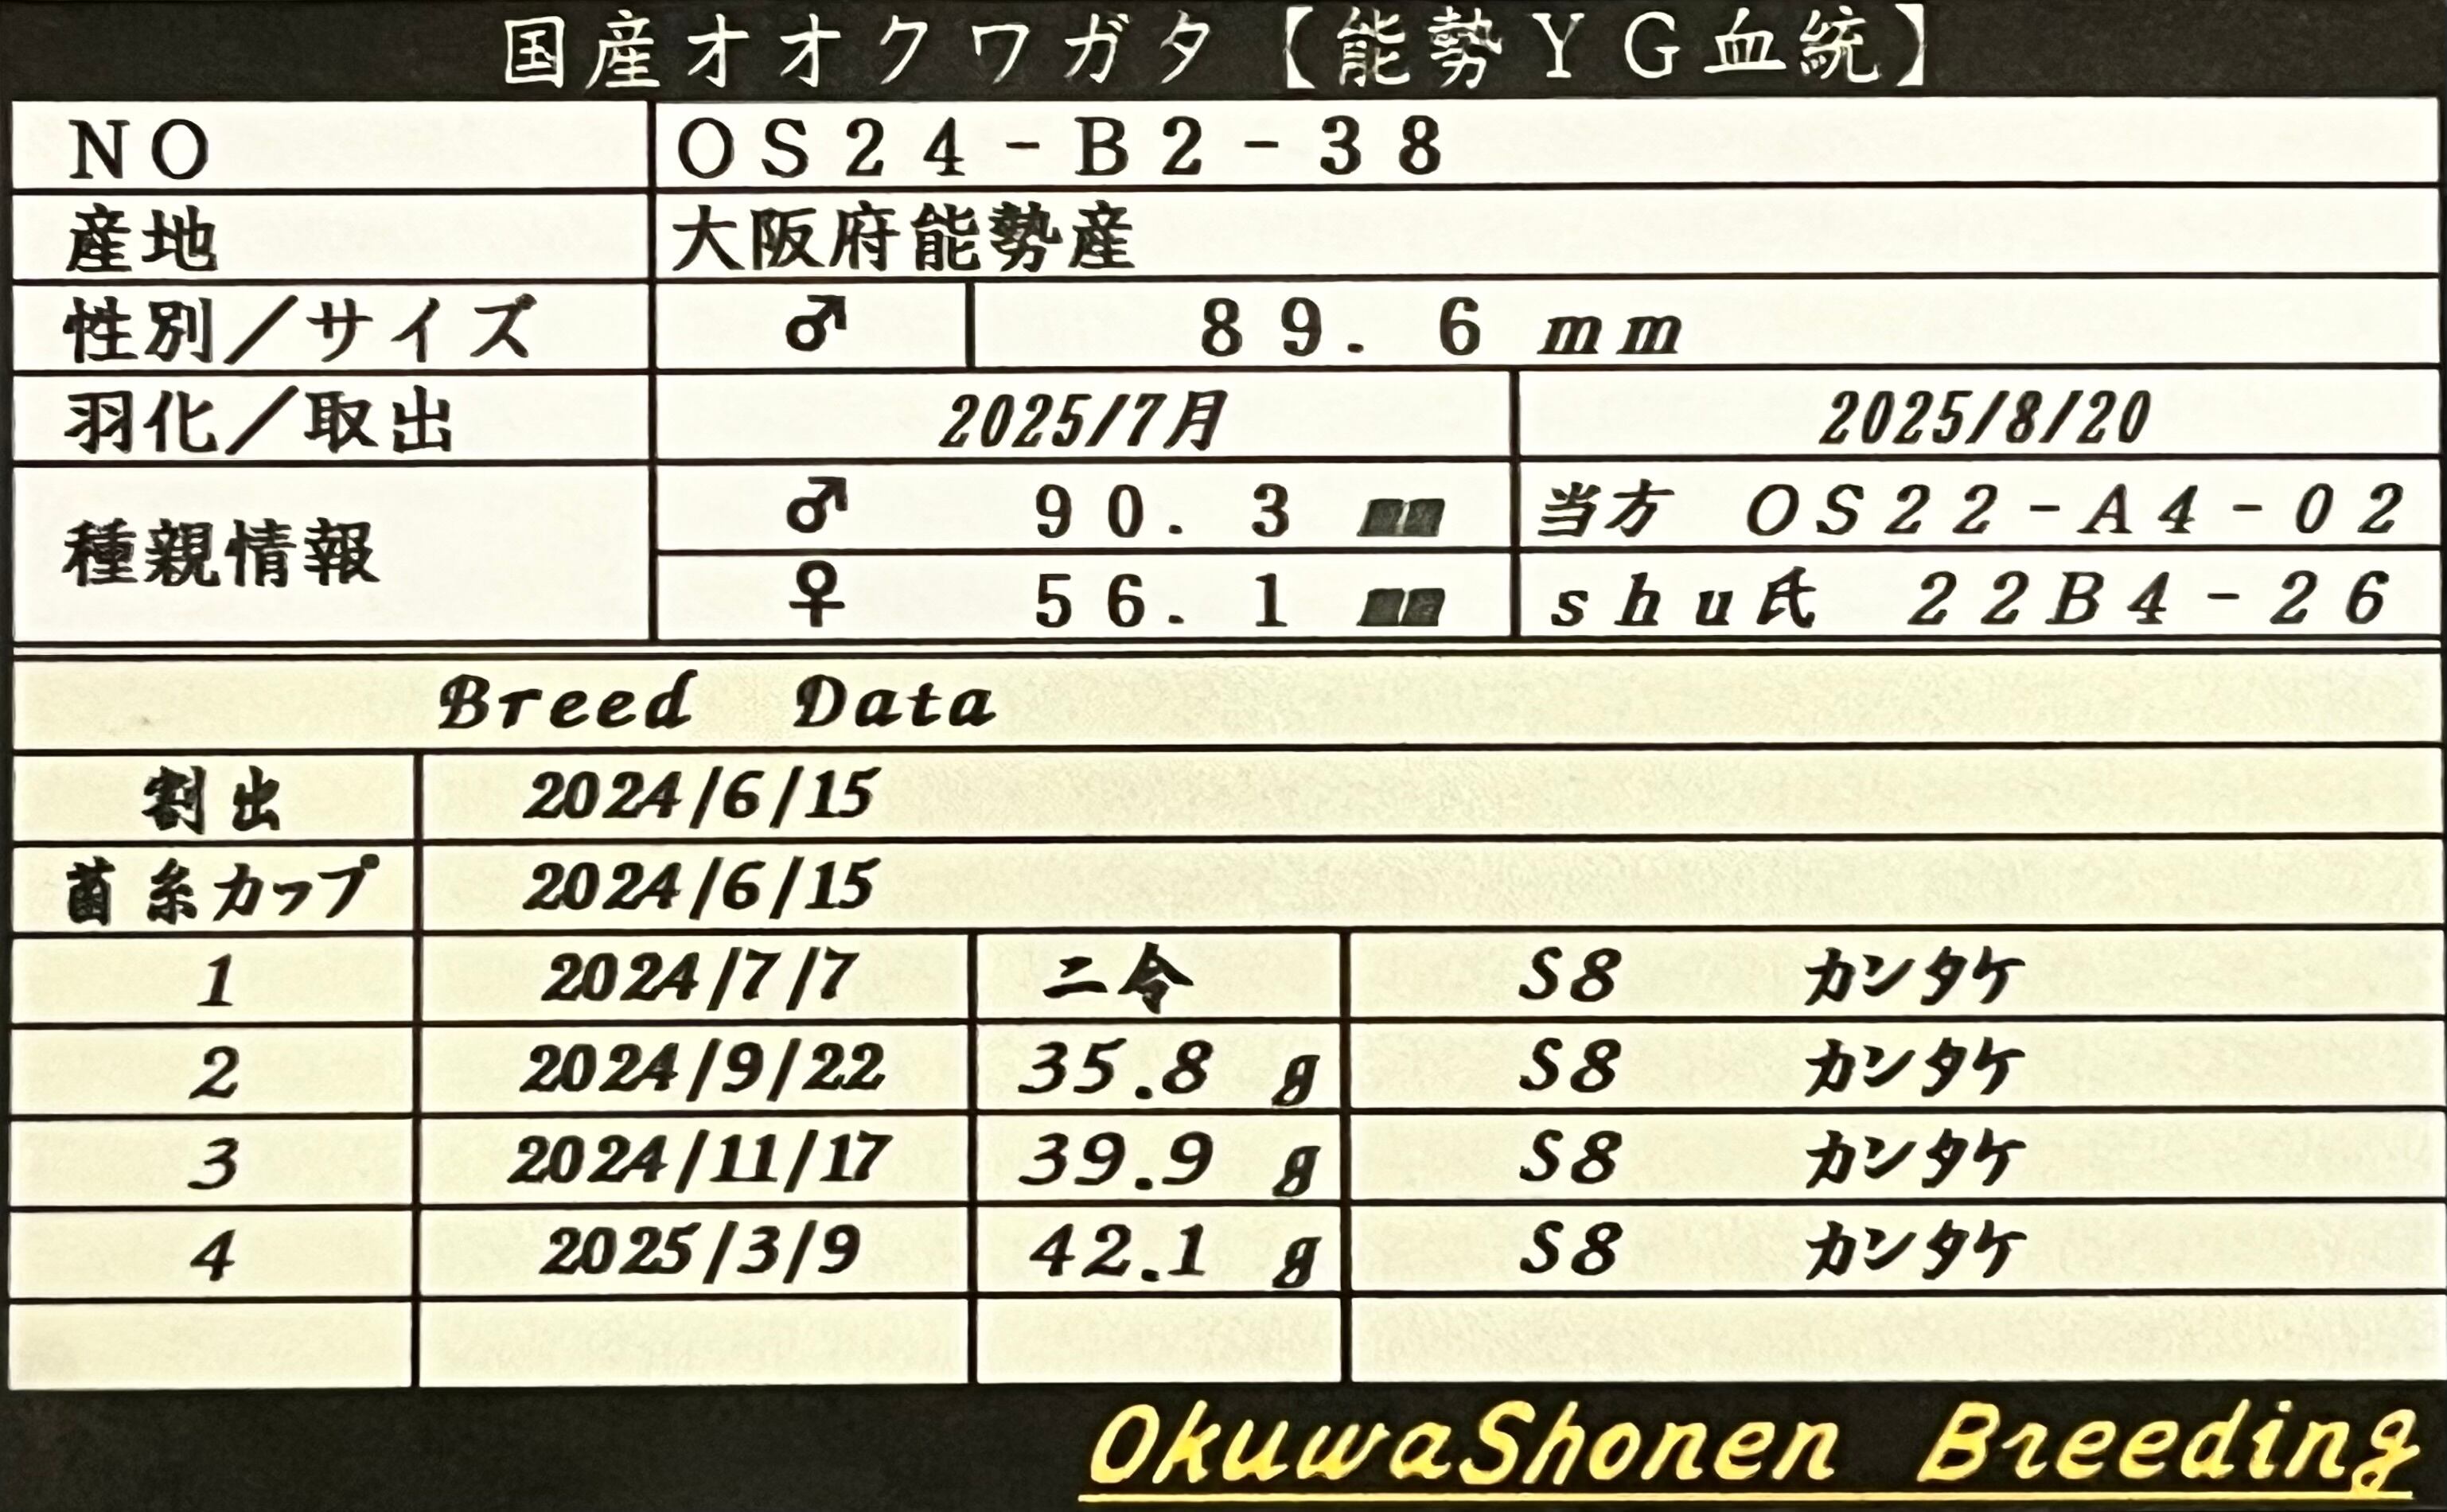 国産オオクワガタ【能勢ＹＧ血統】
NO OS24-B2-38
産地 大阪府能勢産
性別／サイズ ♂ 89.6 mm
羽化／取出 2025/7月 2025/8/20
種親情報 ♂ 90.3 ㎜ 当方 OS22-A4-02
♀ 56.1 ㎜ shu氏 22B4-26
Breed Data
割出 2024/6/15
菌糸カップ 2024/6/15
1 2024/7/7 二令 S8 カンタケ
2 2024/9/22 35.8 g S8 カンタケ
3 2024/11/17 39.9 g S8 カンタケ
4 2025/3/9 42.1 g S8 カンタケ
OkuwaShonen Breeding